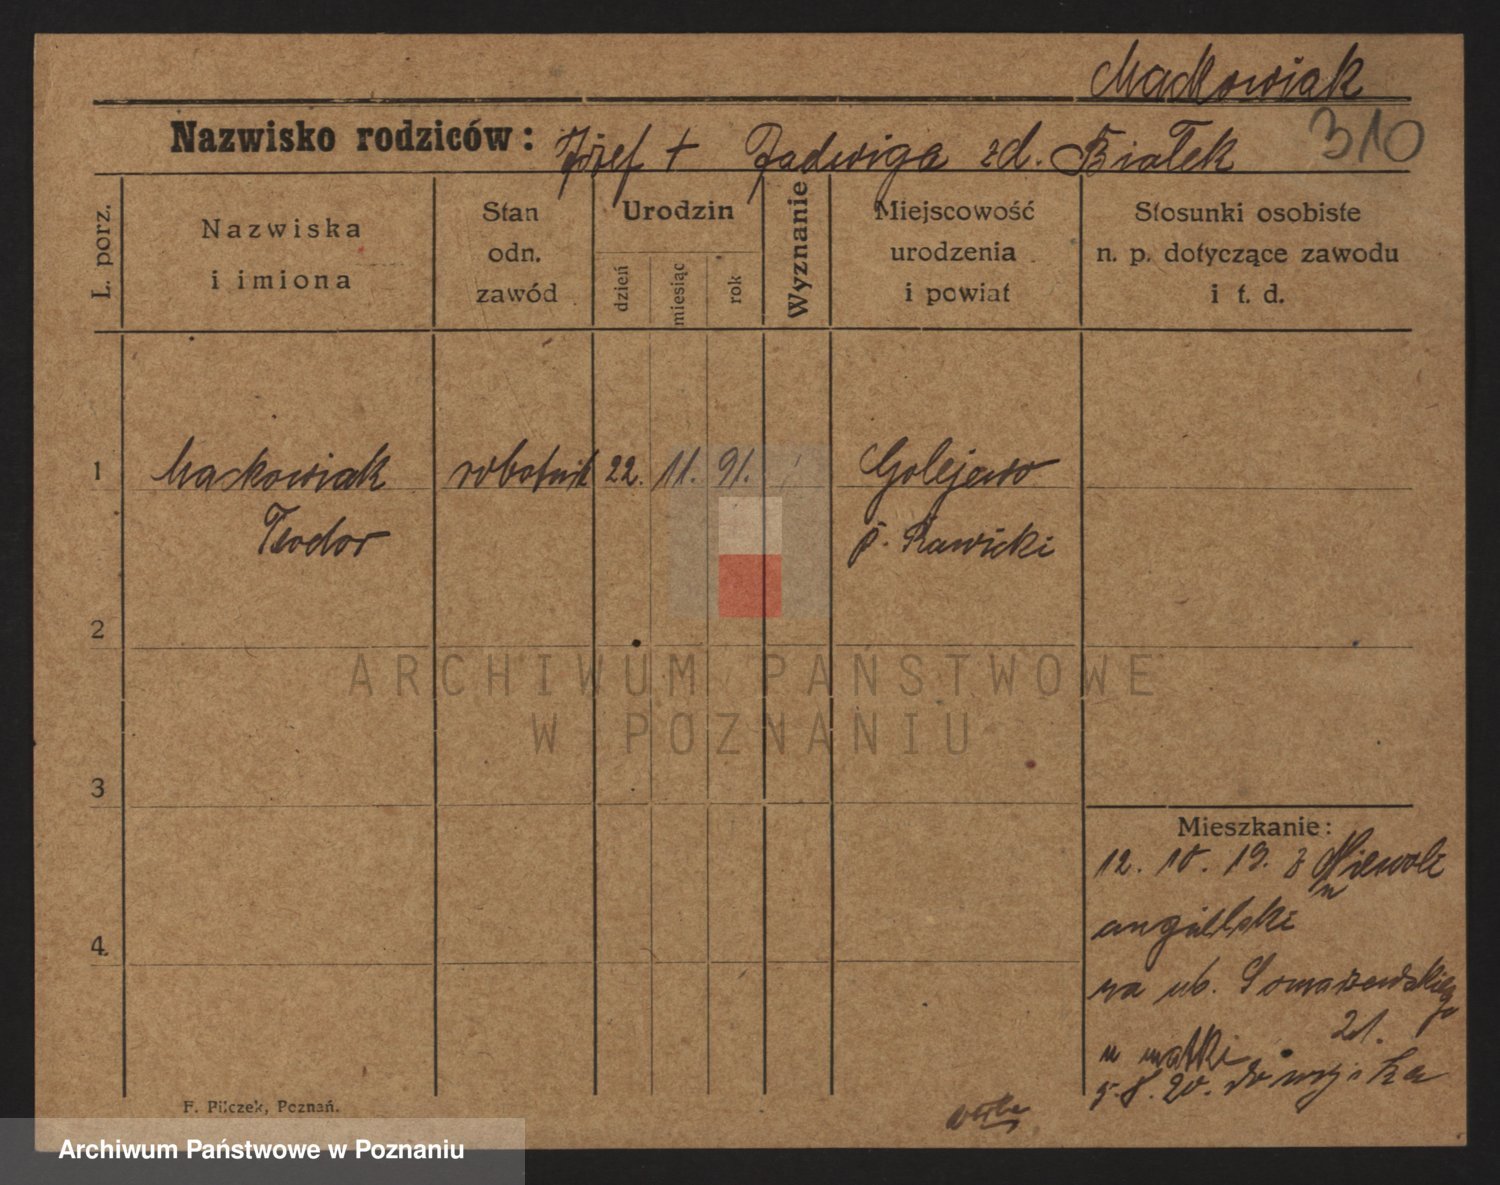 Maćkowiak
310
Nazwisko rodziców: Józef + Jadwiga zd. Białek
L. porz.
Nazwiska
i imiona
Stan
odn.
zawód
Urodzin
dzień
miesiąc
rok
Wyznanie
Miejscowość
urodzenia
i powiat
Stosunki osobiste
n. p. dotyczące zawodu
i t. d.
1 Maćkowiak robotnik 22. 11. 91. Golejewo
Teodor p. Rawicki
2
3
4
Mieszkanie:
12. 10. 19. z Niewoli
angielski
na ul.
u matki 21.
5. 8. 20. do wojska
F. Pilczek, Poznań.
ARCHIWUM PAŃSTWOWE
W POZNANIU
Archiwum Państwowe w Poznaniu